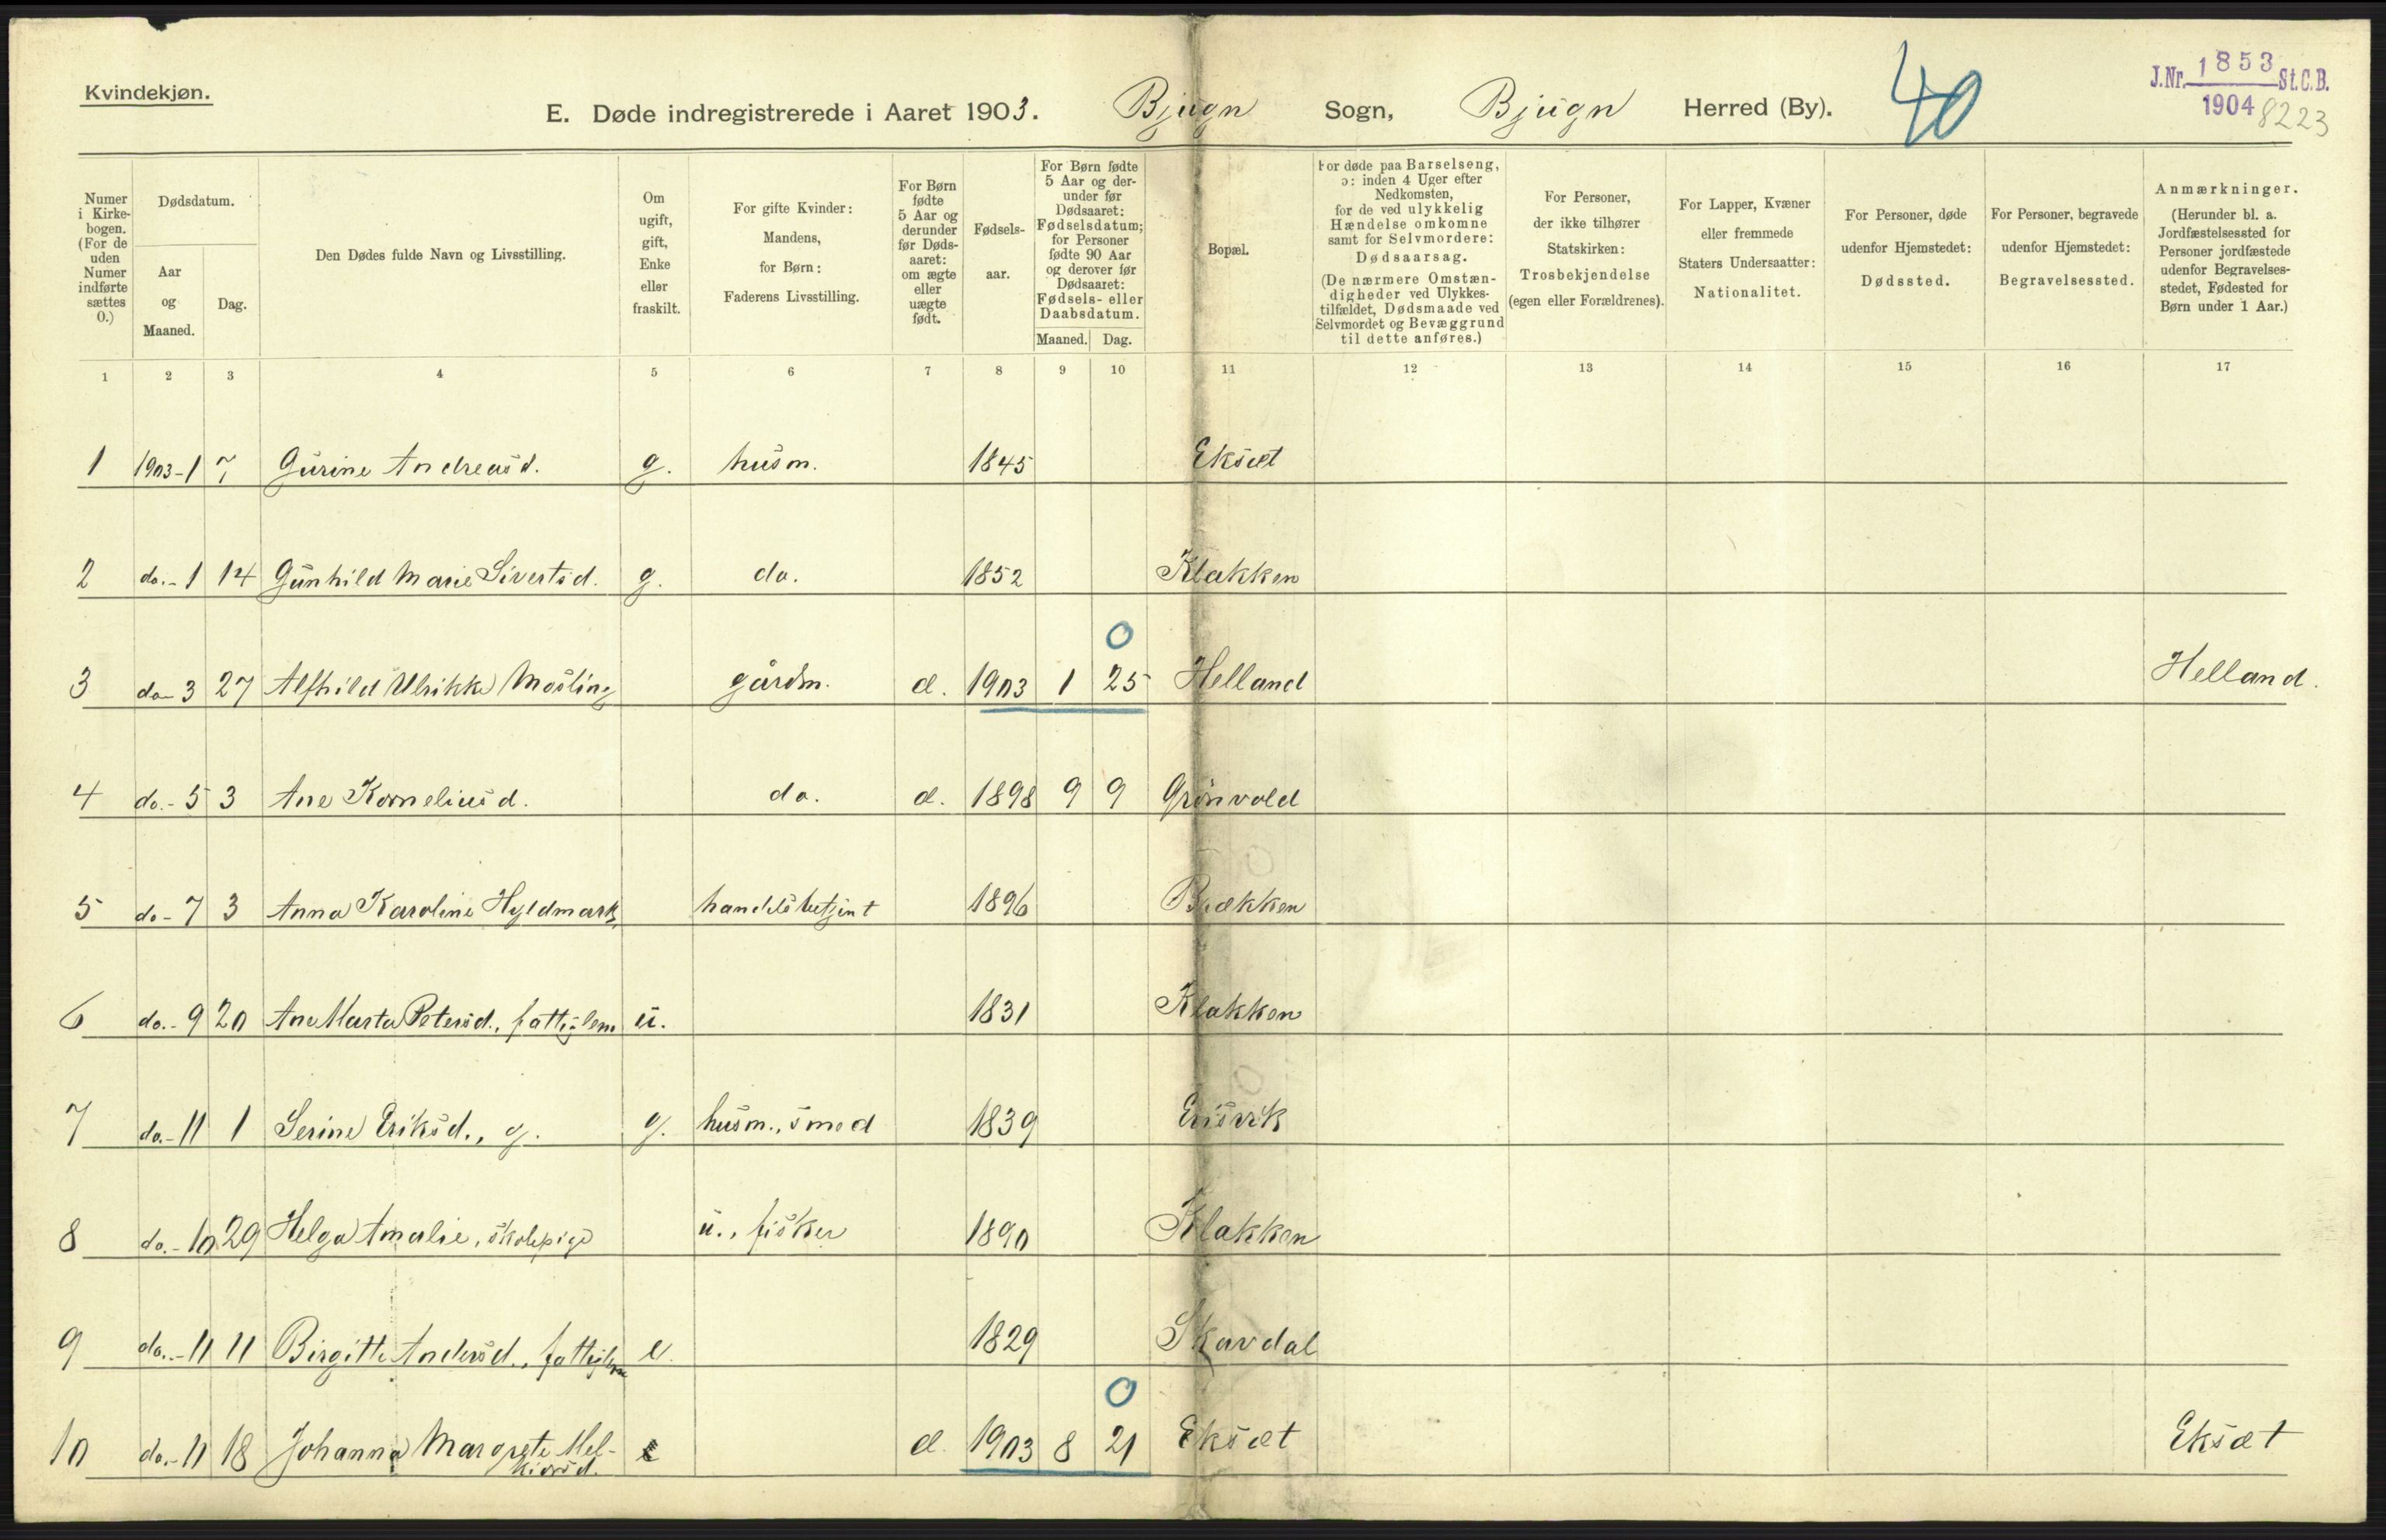 Kvindekjøn.
E. Døde indregistrerede i Aaret 1903. Bjugn Sogn, Bjugn Herred (By).
40
J.Nr. 1853 St.C.B.
1904 8223
Numer i Kirkebogen. (For de uden Numer indførte sættes 0.)
Dødsdatum.
Aar og Maaned.
Dag.
Den Dødes fulde Navn og Livsstilling.
Om ugift, gift, Enke eller fraskilt.
For gifte Kvinder: Mandens, for Børn: Faderens Livsstilling.
For Børn fødte 5 Aar og derunder før Dødsaaret: om ægte eller uægte født.
Fødselsaar.
For Børn fødte 5 Aar og derunder før Dødsaaret: Fødselsdatum; for Personer fødte 90 Aar og derover før Dødsaaret: Fødsels- eller Daabsdatum.
Maaned. Dag.
Bopæl.
For døde paa Barselseng, ɔ: inden 4 Uger efter Nedkomsten, for de ved ulykkelig Hændelse omkomne samt for Selvmordere: Dødsaarsag. (De nærmere Omstændigheder ved Ulykkestilfældet, Dødsmaade ved Selvmordet og Bevæggrund til dette anføres.)
For Personer, der ikke tilhører Statskirken: Trosbekjendelse (egen eller Forældrenes).
For Lapper, Kvæner eller fremmede Staters Undersaatter: Nationalitet.
For Personer, døde udenfor Hjemstedet: Dødssted.
For Personer, begravede udenfor Hjemstedet: Begravelsessted.
Anmærkninger. (Herunder bl. a. Jordfæstelsessted for Personer jordfæstede udenfor Begravelsesstedet, Fødested for Børn under 1 Aar.)
1 2 3 4 5 6 7 8 9 10 11 12 13 14 15 16 17
1 1903-1 7 Gurine Andreasd. g. husm. 1845 Eksæt
2 do.-1 14 Gunhild Marie Sivertsd. g. do. 1852 Klakken
0
3 do-3 27 Alfhild Ulrikke Mosling gårdm. æ. 1903 1 25 Helland Helland.
4 do.-5 3 Ane Korneliusd. do. æ. 1898 9 9 Grönvold
5 do-7 3 Anna Karoline Hyldmark, handelsbetjent 1896 Bækken
6 do.-9 20 Ane Marta Petersd., fattiglem u. 1831 Klakken
7 do.-11 1 Serine Eriksd., g. g. husm., smed 1839 Ensvik
8 do.-10 29 Helga Amalie, skolepige u., fisker 1890 Klakken
9 do.-11 11 Birgitte Andersd., fattiglem e. 1829 Skavdal
0
10 do.-11 18 Johanna Margrete Mel- æ. 1903 8 21 Eksæt Eksæt
kiorsd.